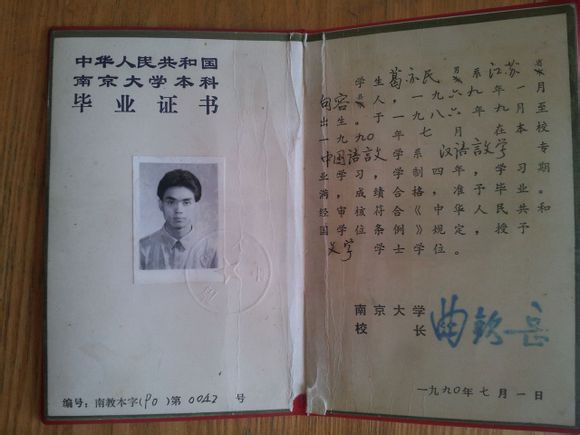 中华人民共和国
南京大学本科
毕业证书
编号：南教本字(90)第0042号
学生葛亦民 男 系江苏省
句容县人，一九六九年一月
出生。于一九八六年九月至
一九九〇年七月在本校
中国语言文学系汉语言文学专
业学习，学制四年，学习期
满，成绩合格，准予毕业。
经审核符合《中华人民共和
国学位条例》规定，授予
文学学士学位。
南京大学
校长 曲钦岳
一九九〇年七月一日